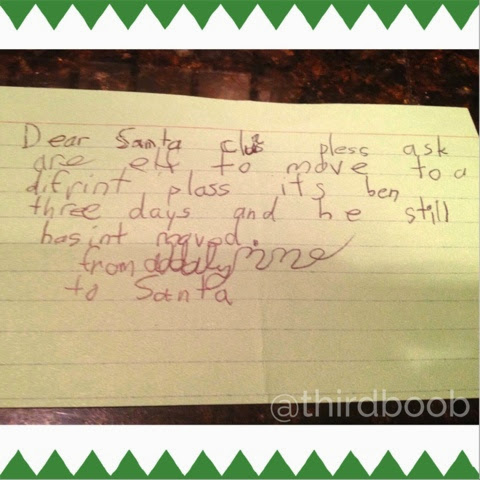 Dear Santa clus pless ask
are elf to move to a
difrint plass its ben
three days and he still
hasint moved.
from
to Santa
@thirdboob